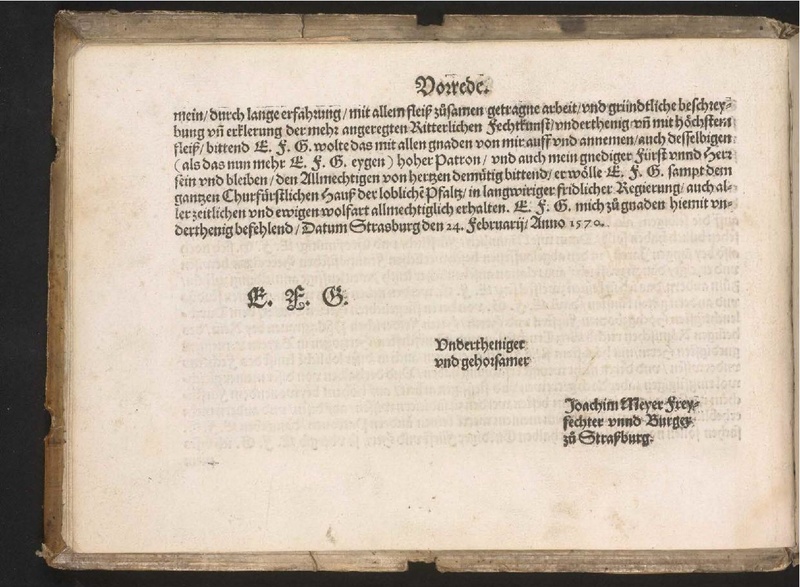 Vorrede.
mein/ durch lange erfahrung/ mit allem fleiß zůsamen getragne arbeit/ vnd gründtliche beschrey-
bung vñ erklerung der mehr angeregten Ritterlichen Fechtkunst/ vnderthenig vñ mit höchstem
fleiß/ bittend E. F. G. wolte das mit allen gnaden von mir auff vnd annemen/ auch desselbigen
(als das nun mehr E. F. G. eygen) hoher Patron/ vnd auch mein gnediger Fürst vnnd Herr
sein vnd bleiben/ den Allmechtigen von hertzen demütig bittend/ er wölle E. F. G. sampt dem
gantzen Churfürstlichen Hauß der loblichẽ Pfaltz/ in langwiriger fridlicher Regierung/ auch al-
ler zeitlichen vnd ewigen wolfart allmechtiglich erhalten. E. F. G. mich zů gnaden hiemit vn-
derthenig befehlend/ Datum Strasburg den 24. Februarij/ Anno 1570.
E. F. G.
Vndertheniger
vnd gehorsamer
Joachim Meyer Frey-
fechter vnnd Burger
zů Straßburg.